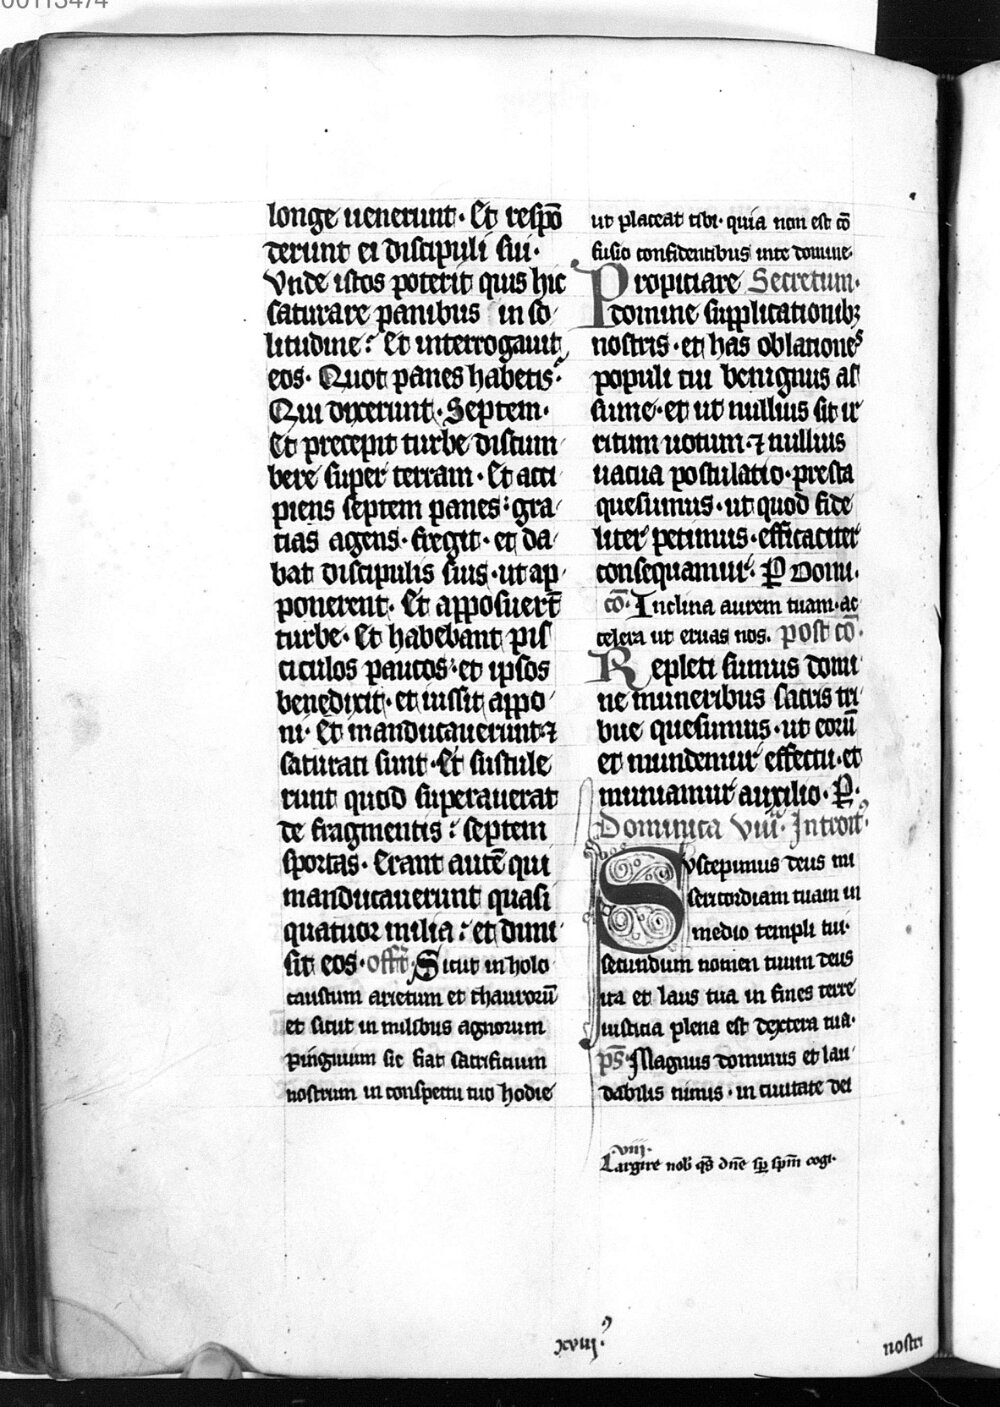 00113474
longe uenerunt· Et respō
derunt ei discipuli sui·
Vnde istos poterit quis hic
saturare panibus in so
litudine? Et interrogauit
eos· Quot panes habetis?
Qui dixerunt· Septem·
Et precepit turbe discum
bere super terram· Et acci
piens septem panes: gra
tias agens· fregit· et da
bat discipulis suis· ut ap
ponerent· Et apposuert̄
turbe· Et habebant pis
ciculos paucos: et ipsos
benedixit· et iussit appo
ni· Et manducauerunt ⁊
saturati sunt· Et sustule
runt quod superauerat
de fragmentis: septem
sportas· Erant autē qui
manducauerunt quasi
quatuor milia: et dimi
sit eos· offr̄· Sicut in holo
caustum arietum et thaurorū
et sicut in milibus agnorum
pinguium sic fiat sacrificium
nostrum in conspectu tuo hodie
ut placeat tibi· quia non est cō
fusio confidentibus in te domine·
Propiciare Secretum·
domine supplicationibꝫ
nostris· et has oblationes
populi tui benignus as
sume· et ut nullius sit ir
ritum uotum· ⁊ nullius
uacua postulatio· presta
quesumus· ut quod fide
liter petimus· efficaciter
consequamur· P Domi·
cō· Inclina aurem tuam· ac
celera ut eruas nos· post cō·
Repleti sumus domi
ne muneribus sacris tri
bue quesumus· ut eorū
et mundemur effectu· et
muniamur auxilio· P·
Dominica viii· Introit·
Suscepimus deus mi
sericordiam tuam in
medio templi tui·
secundum nomen tuum deus
ita et laus tua in fines terre
iusticia plena est dextera tua·
ps̄· Magnus dominus et lau
dabilis nimis· in ciuitate dei
viii·
Largire nob̄ qs̄ dn̄e sꝑ spm̄ cogi·
xviii
nostri